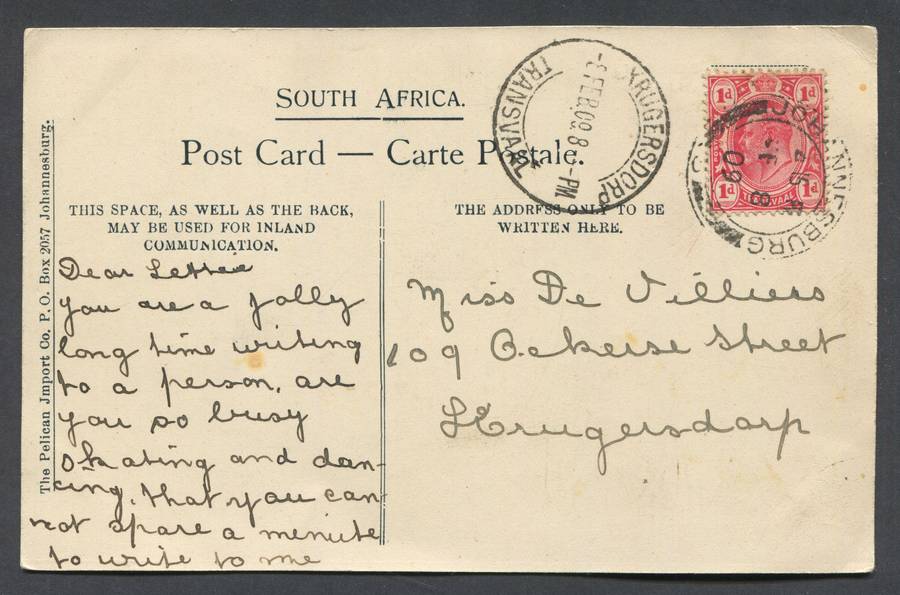 SOUTH AFRICA.
Post Card — Carte Postale.
THIS SPACE, AS WELL AS THE BACK,
MAY BE USED FOR INLAND
COMMUNICATION.
THE ADDRESS ONLY TO BE
WRITTEN HERE.
The Pelican Jmport Co. P.O. Box 2057 Johannesburg.
KRUGERSDORP
-8 FEB 09. 8 -PM
TRANSVAAL
1d 1d
1d 1d
TRANSVAAL
JOHANNESBURG
Dear Lettie
you are a jolly
long time writing
to a person, are
you so busy
skating and dan-
cing, that you can-
not spare a menute
to write to me
Miss De Villiers
109 Ockerse Street
Krugersdorp